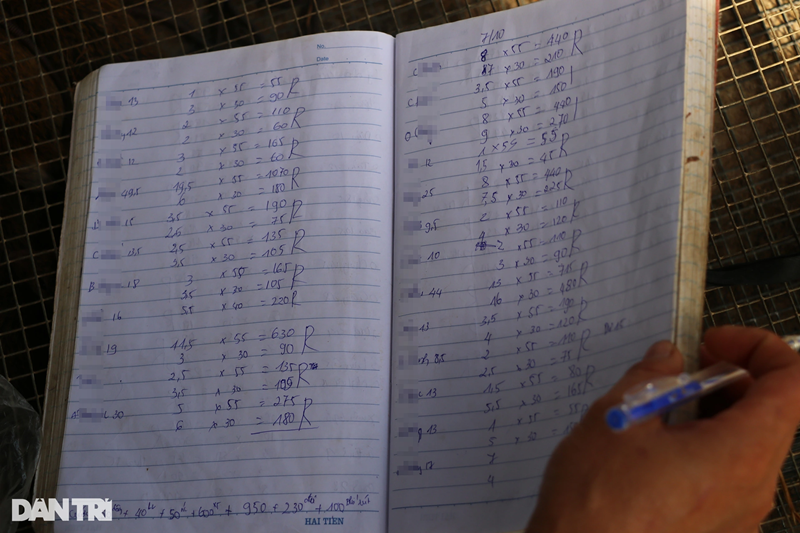 No.
Date
13 1 x 55 = 55
3 x 30 = 90 R
12 2 x 55 = 110
2 x 30 = 60 R
11 3 x 55 = 165
2 x 30 = 60 R
49,5 19,5 x 55 = 1070
6 x 30 = 180 R
15 3,5 x 55 = 190
2,5 x 30 = 75 R
C 2,5 x 55 = 135
3,5 x 30 = 105 R
B 18 3 x 55 = 165
3,5 x 30 = 105 R
16 5,5 x 40 = 220 R
19 11,5 x 55 = 630
3 x 30 = 90 R
2,5 x 55 = 135
3,5 x 30 = 105 R
30 5 x 55 = 275
6 x 30 = 180 R
+ 40 + 50 + 600 + 950 + 230 + 100
HAI TIEN
7/10
C 8 x 55 = 440
7 x 30 = 210 R
C 3,5 x 55 = 190
5 x 30 = 150
8 x 55 = 440
9 x 30 = 270
1 x 55 = 55
1,5 x 30 = 45 R
25 8 x 55 = 440
7,5 x 30 = 225 R
9,5 2 x 55 = 110
4 x 30 = 120 R
10 2 x 55 = 110
3 x 30 = 90 R
44
16 x 30 = 480 R
13 3,5 x 55 = 190
4 x 30 = 120 R
8,5 2 x 55 = 110
2,5 x 30 = 75 R
13 1,5 x 55 = 80
5,5 x 30 = 165 R
13 1 x 55 = 55
5 x 30
17 7
4
DÂN TRÍ